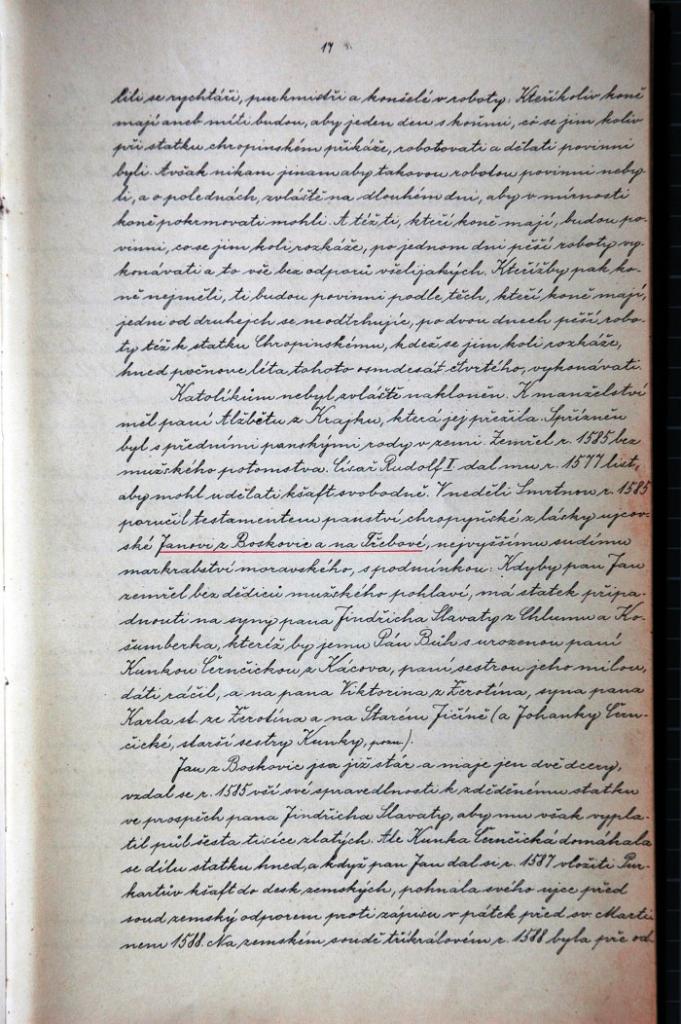 17
lili se rychtáři, purkmidři a konšelé v roboty. Kteříkoliv koně
mají aneb míti budou, aby jeden den s koňmi, co se jim koliv
při statku chropinském přikáže, robotovati a dělati povinni
byli. Avšak nikam jinam aby takovou robotou povinni neby-
li, a o polednách, zvláště na dlouhém dni, aby v mírnosti
koně pokrmovati mohli. A též ti, kteří koně mají, budou po-
vinni, co se jim koli rozkáže, po jednom dni pěší roboty vy-
konávati a to vše bez odporů všelijakých. Kteřížby pak ko-
ně nejměli, ti budou povinni podle těch, kteří koně mají,
jedni od druhejch se neodtrhujíc, po dvou dnech pěší robo-
ty též k statku Chropinskému, kdež se jim koli rozkáže,
hned počnouc léta tohoto osmdesát čtvrtého, vykonávati.
Katolíkům nebyl zvláště nakloněn. K manželství
měl paní Alžbětu z Krajku, která jej přežila. Spřízněn
byl s předními panskými rody v zemi. Zemřel r. 1585 bez
mužského potomstva. Císař Rudolf I. dal mu r. 1577 list,
aby mohl udělati kšaft svobodně. V neděli Smrtnou r. 1585
poručil testamentem panství chropyňské z lásky ujcov-
ské Janovi z Boskovic a na Třebové, nejvyššímu sudímu
markrabství moravského, s podmínkou: Kdyby pan Jan
zemřel bez dědiců mužského pohlaví, má statek připa-
dnouti na syny pana Jindřicha Slavaty z Chlumu a Ko-
šumberka, kteríž by jemu Pán Bůh s urozenou paní
Kunkou Černčickou z Kácova, paní sestrou jeho milou,
dáti ráčil, a na pana Viktorina z Žerotína, syna pana
Karla st. ze Žerotína a na Starém Jičíně (a Johanky Čern-
čické, starší sestry Kunky, pozn.).
Jan z Boskovic jsa již stár a maje jen dvě dcery,
vzdal se r. 1585 vší své spravedlnosti k zděděnému statku
ve prospěch pana Jindřicha Slavaty, aby mu však vypla-
til půl šesta tisíce zlatých. Ale Kunka Černčická domáhala
se dílu statku hned, a když pan Jan dal si r. 1587 vložiti Pur-
kartův kšaft do desk zemských, pohnala svého ujce před
soud zemský odporem proti zápisu v pátek před sv. Marti-
nem 1588. Na zemském soudě tříkrálovém r. 1588 byla pře od-